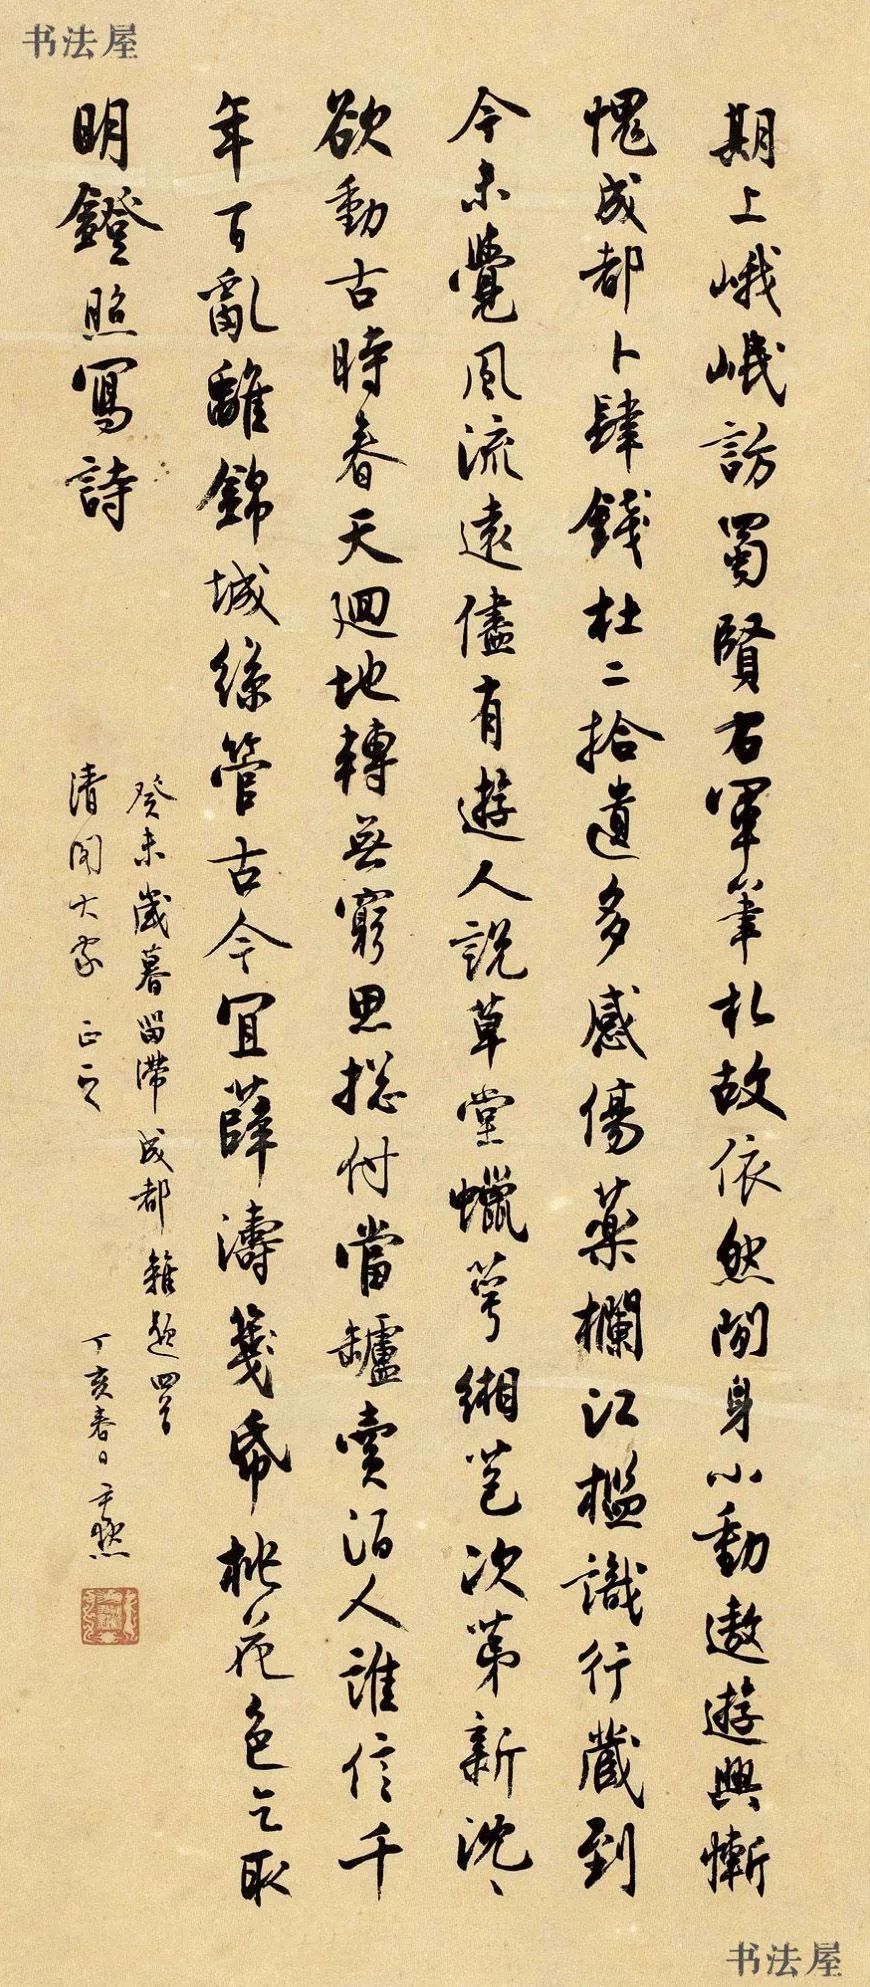 书法屋
期上峨岷訪蜀賢右軍筆札故依然閒身小動遨遊興慚
愧成都卜肆錢杜二拾遺多感傷藥欄江檻識行藏到
今未覺風流遠儘有遊人說草堂蠟萼緗苞次第新沈〻
欲動古時春天迴地轉無窮思總付當罏賣酒人誰信千
年百亂離錦城絲管古今宜薛濤箋紙桃花色乞取
明鐙照寫詩
癸未歲暮留滯成都雜題四首
清閣大家 正之
丁亥春日尹默
书法屋